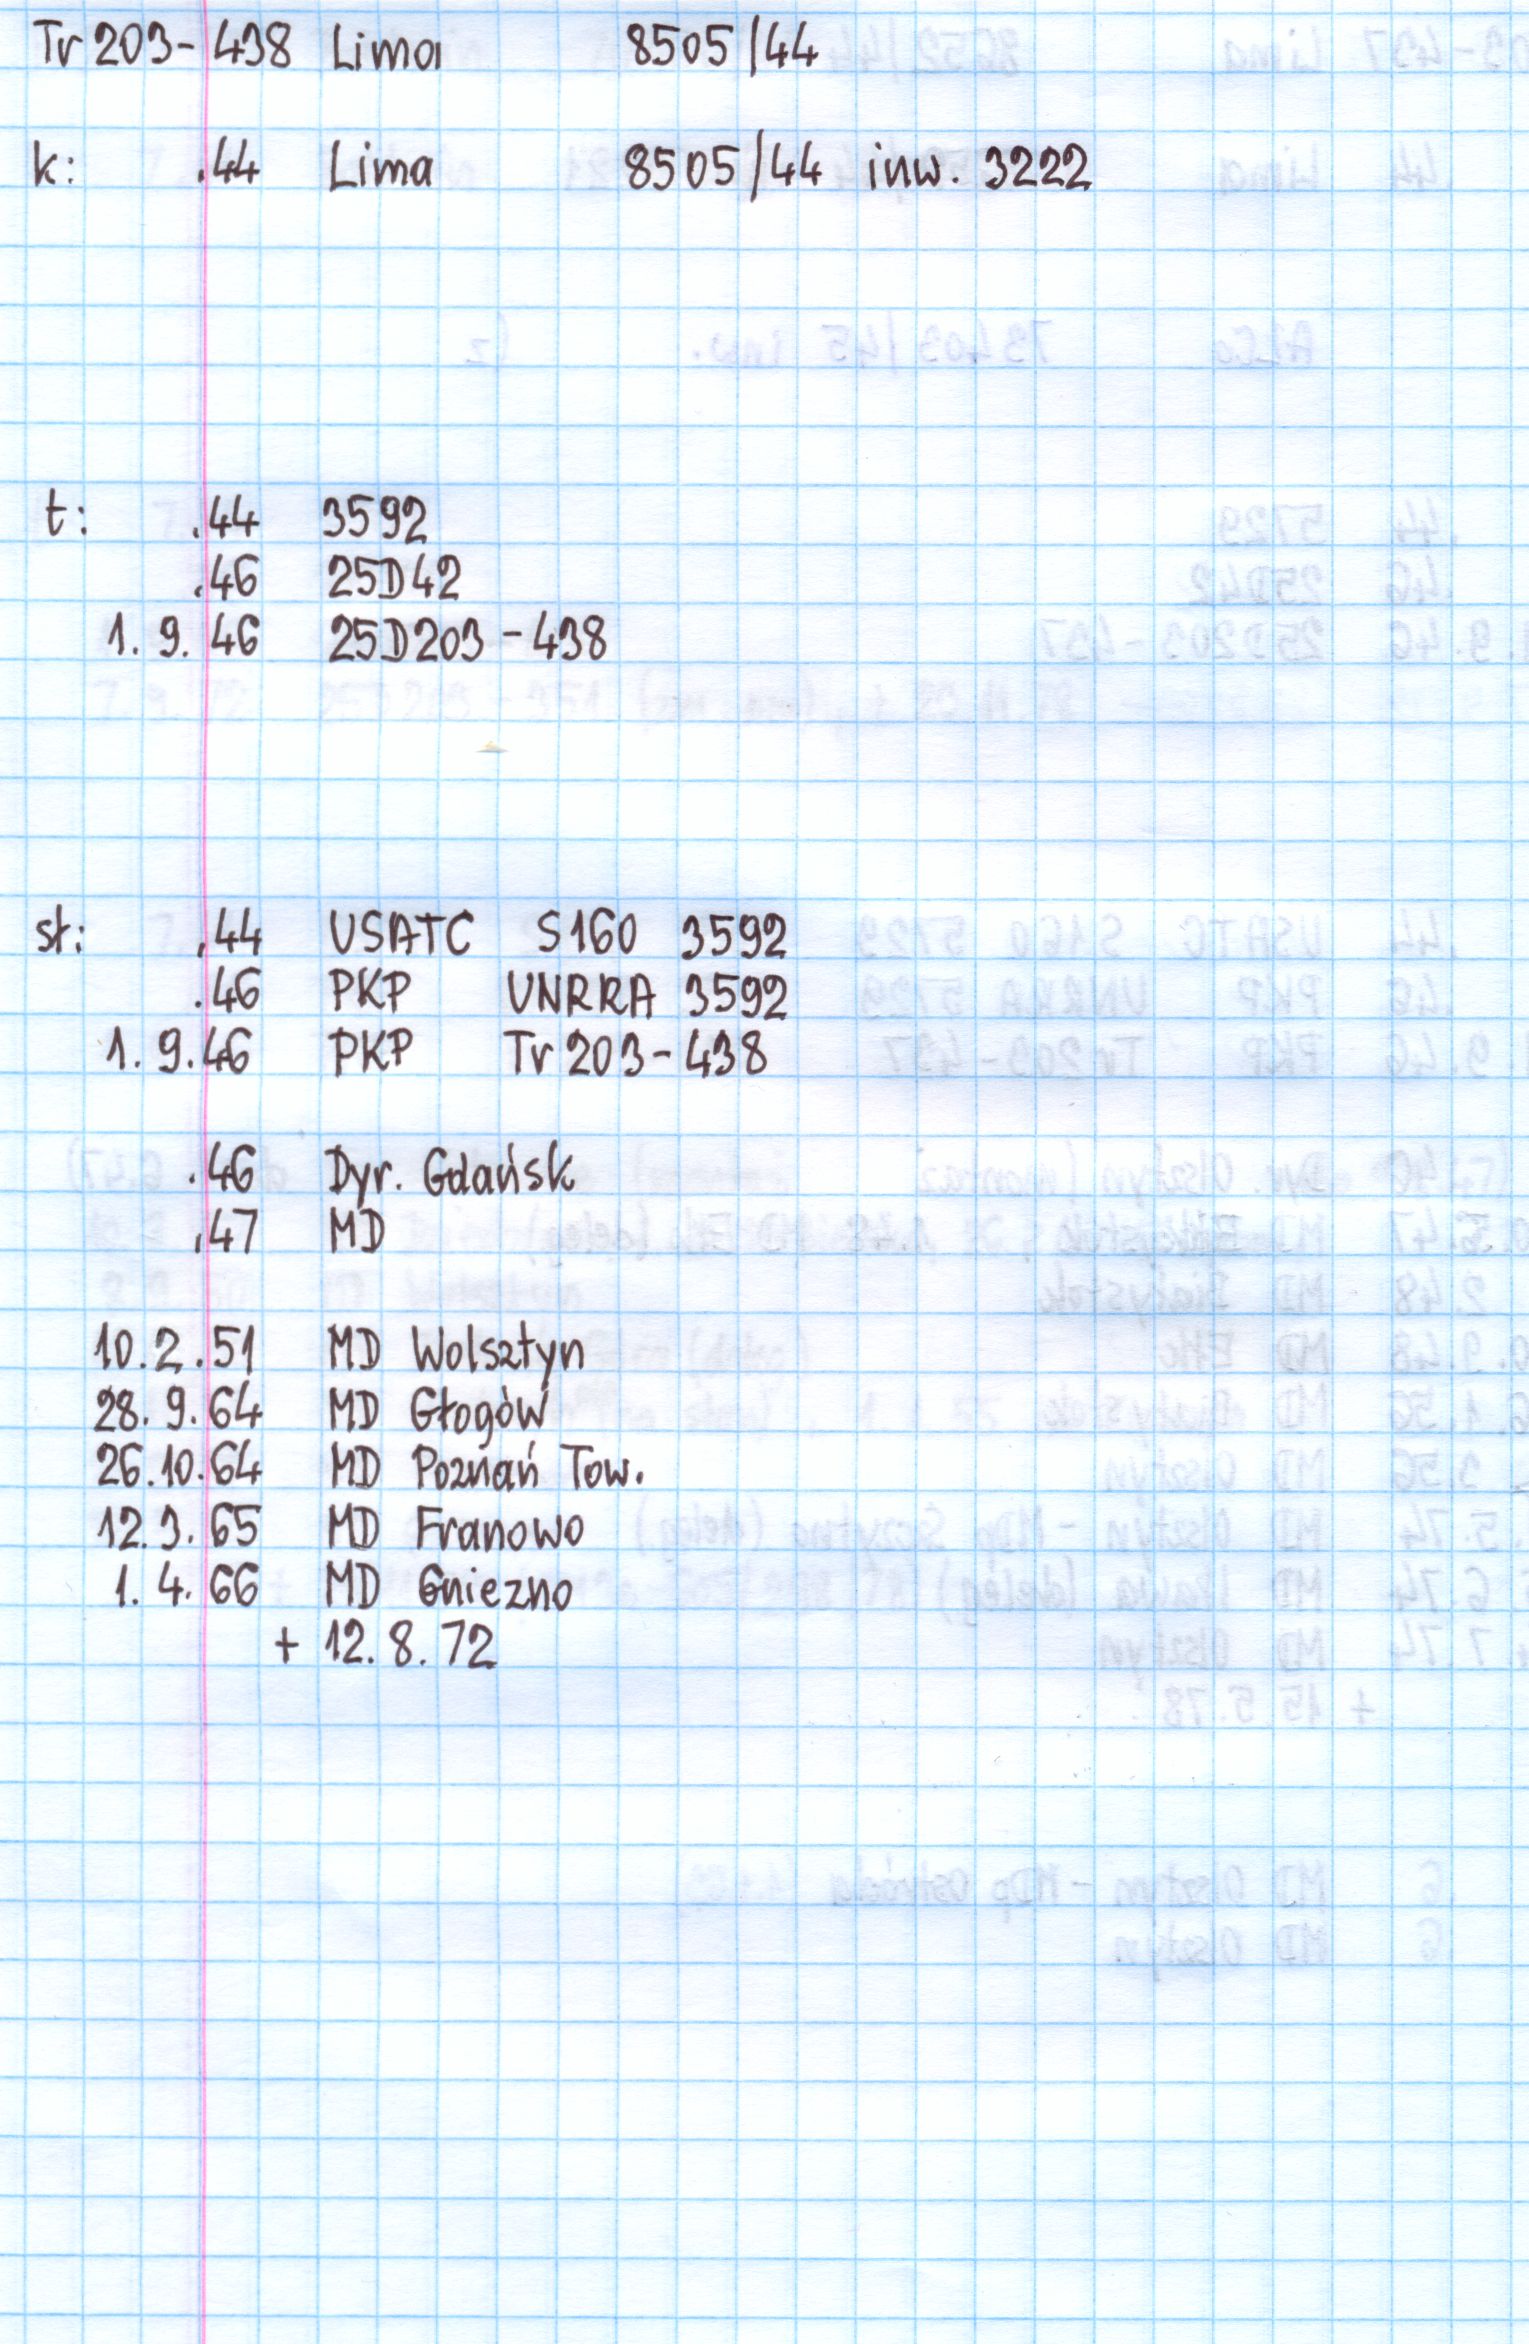 Tr 203-438 Lima 8505/44
k: .44 Lima 8505/44 inw. 3222
t: .44 3592
.46 25D42
1.9.46 25D203-438
st: .44 USATC S160 3592
.46 PKP UNRRA 3592
1.9.46 PKP Tr 203-438
.46 Dyr. Gdańsk
.47 MD
10.2.51 MD Wolsztyn
28.9.64 MD Głogów
26.10.64 MD Poznań Tow.
12.3.65 MD Franowo
1.4.66 MD Gniezno
+ 12.8.72